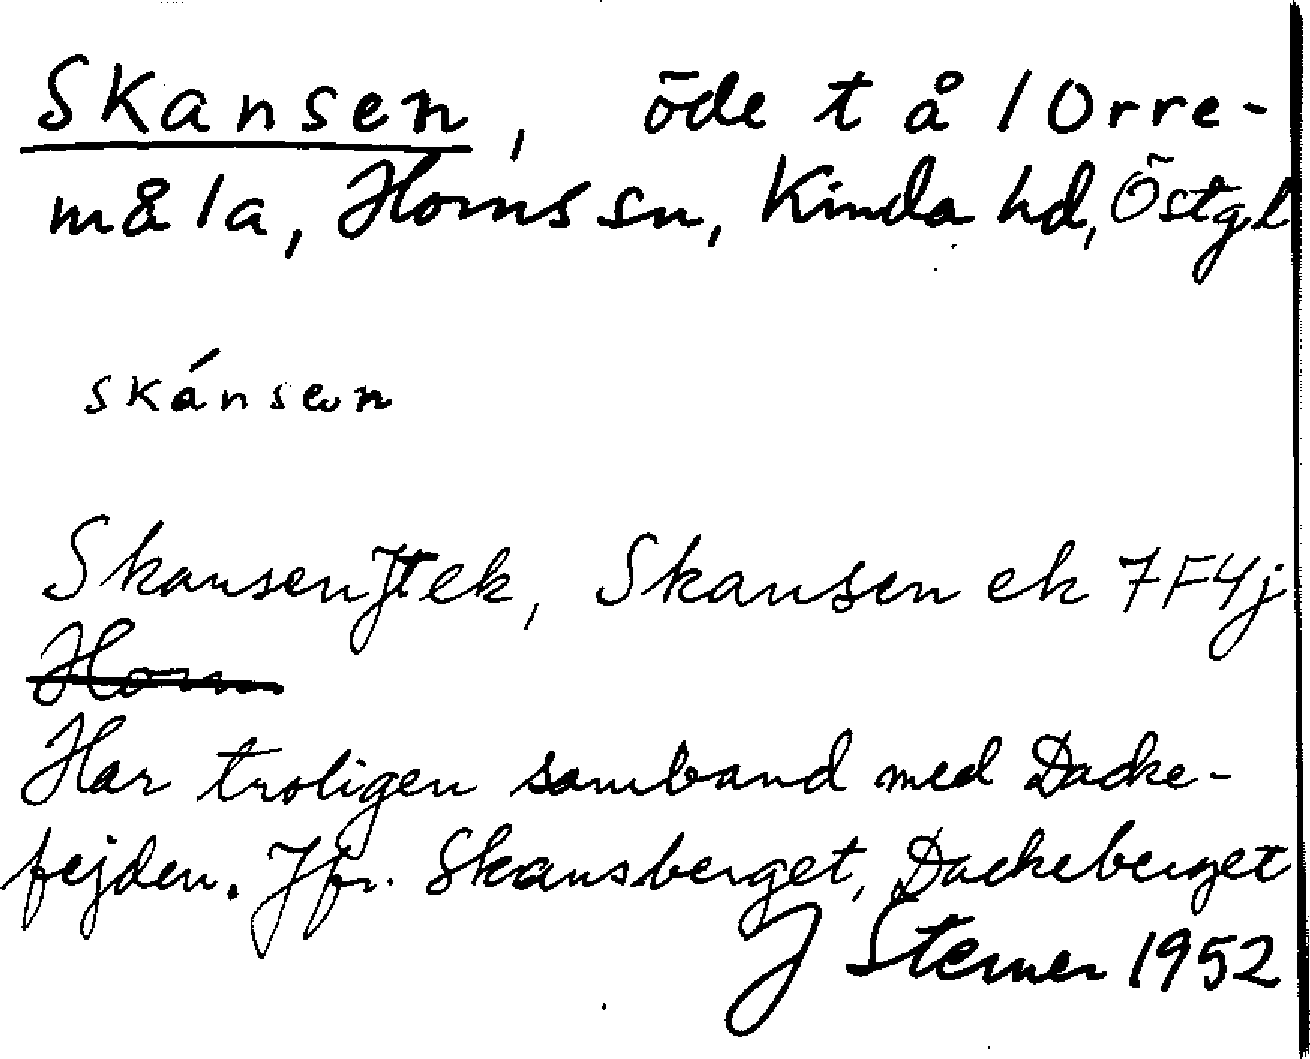 Skansen, öde t å / Orre-
måla, Horns sn, Kinda hd, Östgl
skánsen
Skansen Jtek, Skansen ek 7F4j
Horn
Har troligen samband med Dacke-
fejden. Jfr. Skansberget, Dackeberget
J Sterner 1952